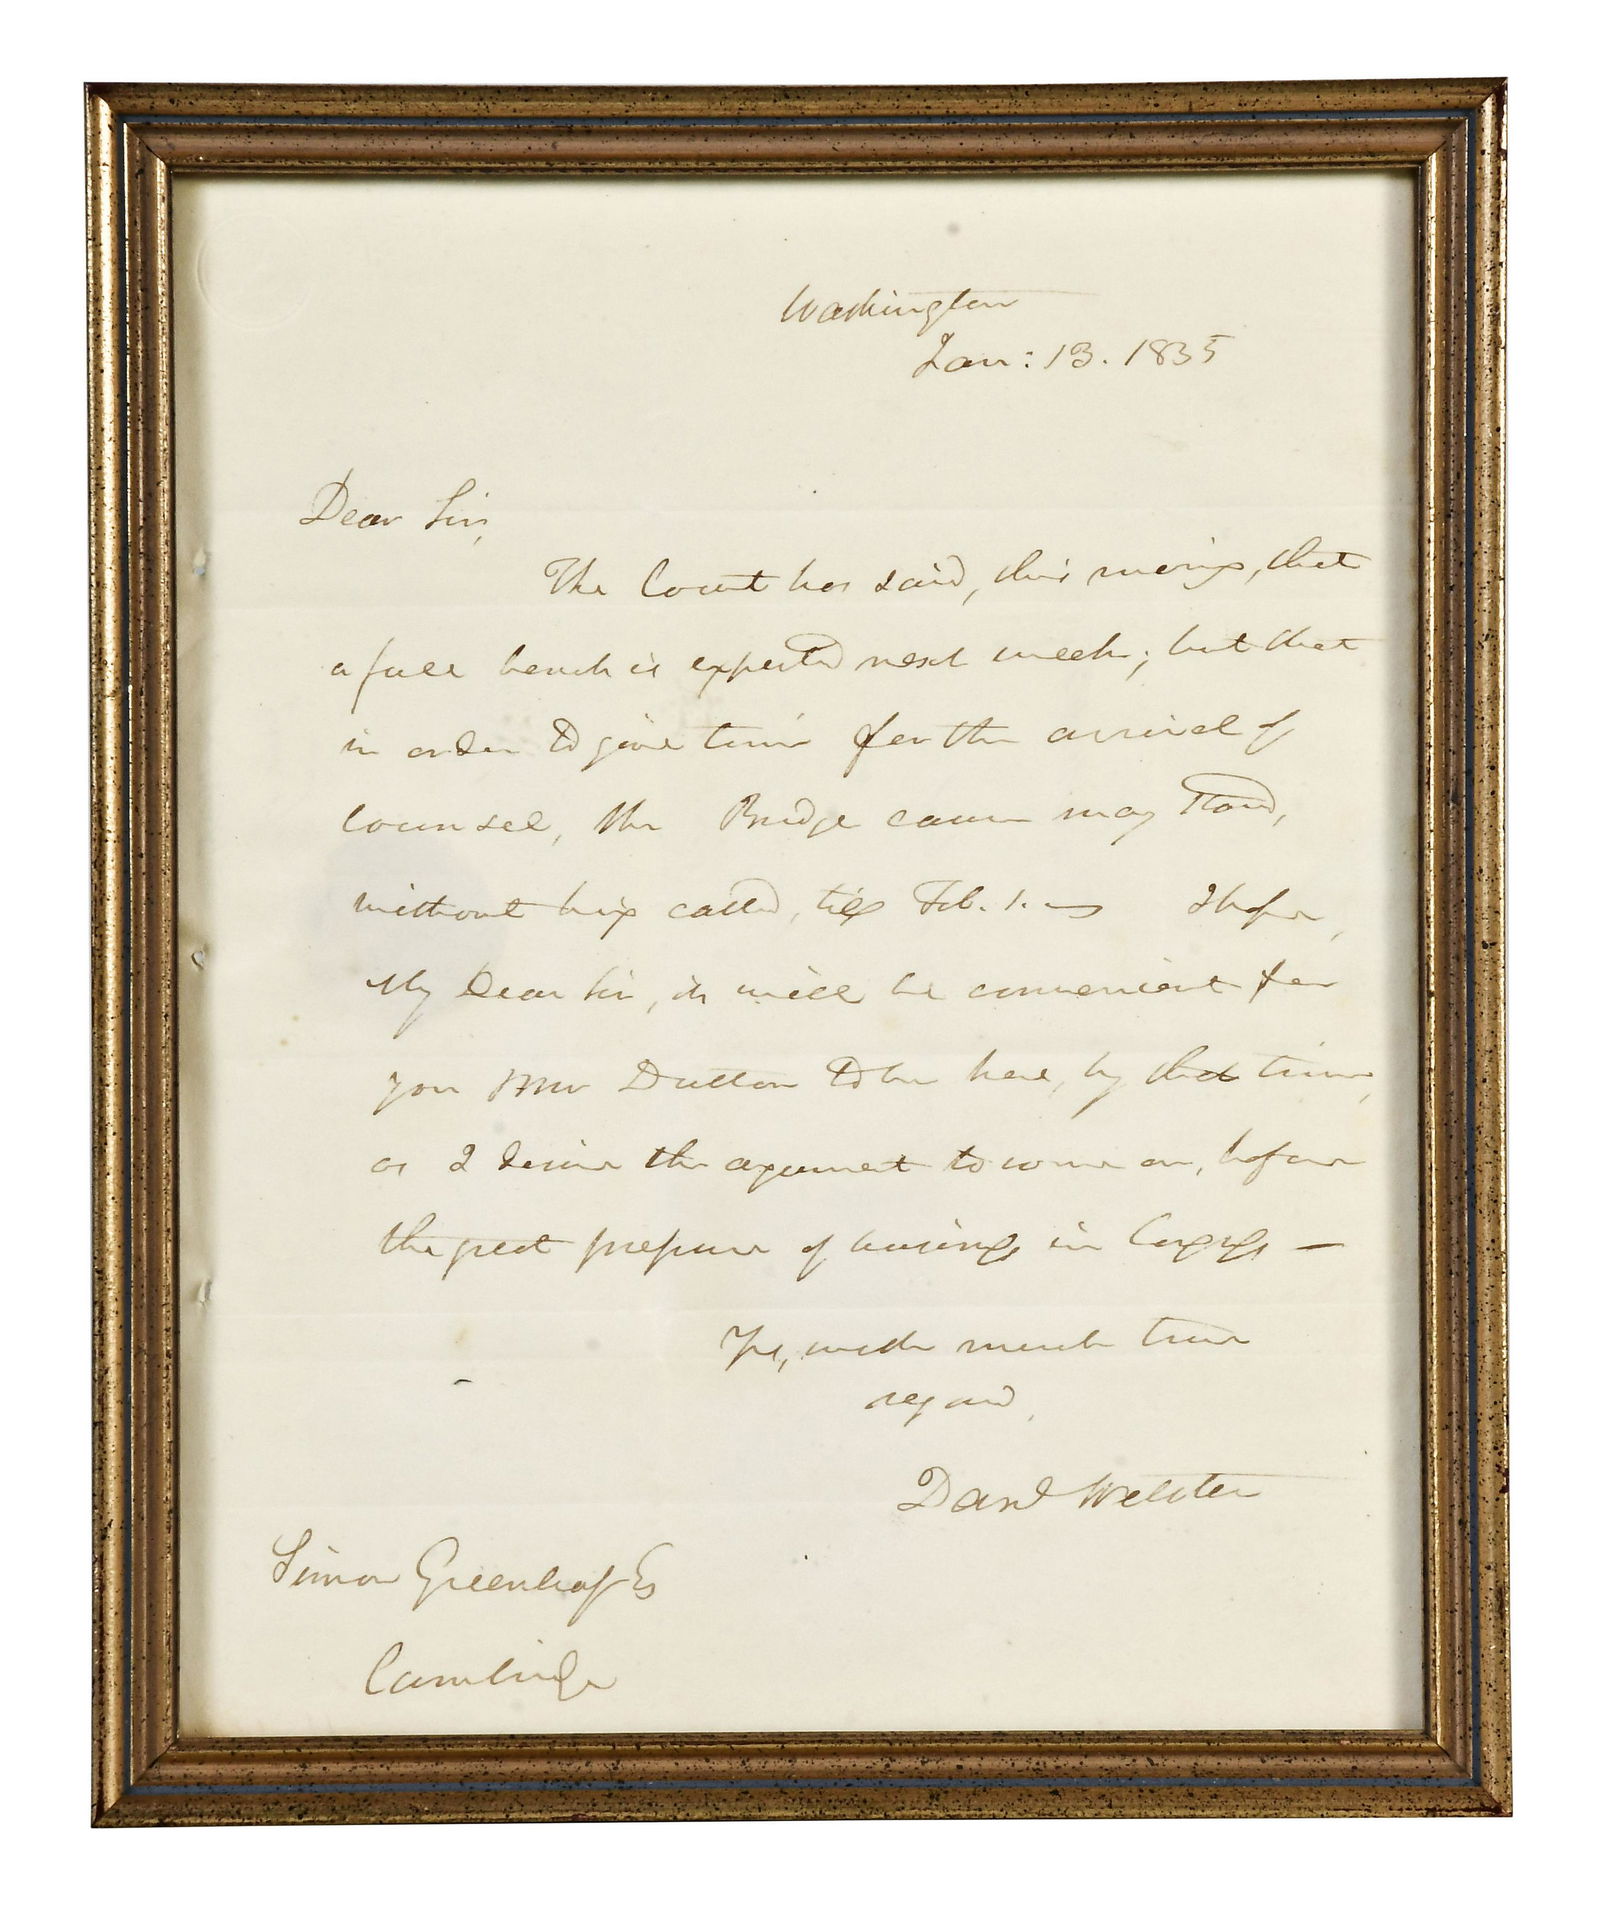 Washington
Jan: 13. 1835
Dear Sir,
The Court has said, this morning, that
a full bench is expected next week; but that
in order to give time for the arrival of
Counsel, the Bridge cause may stand,
without being called, till Feb. 1. I hope,
My Dear Sir, it will be convenient for
you Mr Dutton to be here, by that time,
as I desire the argument to come on, before
the great pressure of business in Congress —
Yrs, with much true
regard,
Danl Webster
Simon Greenleaf Esq
Cambridge